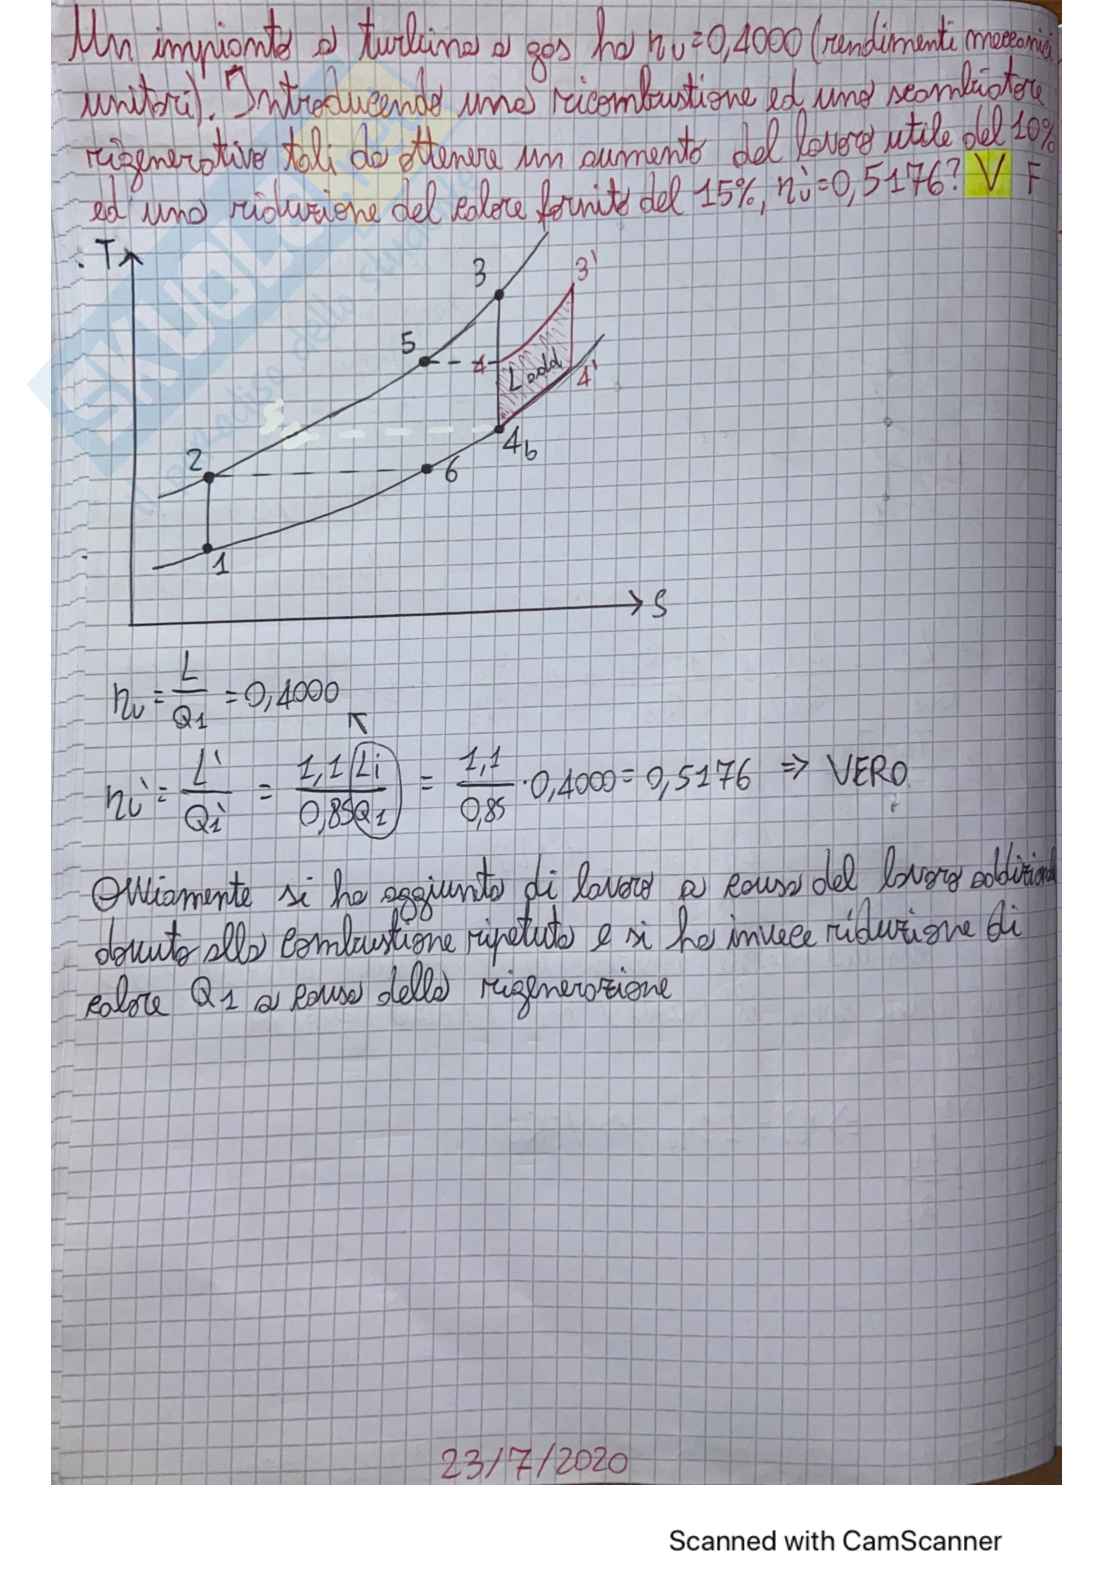 Un impianto a turbina a gas ha ηu=0,4000 (rendimenti meccanici
unitari). Introducendo una ricombustione ed uno scambiatore
rigenerativo tali da ottenere un aumento del lavoro utile del 10%
ed una riduzione del calore fornito del 15%, ηu'=0,5176? V F
T
3
3'
5
4
L add
4'
2
4b
6
1
S
ηu = L/Q1 = 0,4000
ηu' = L'/Q1' = 1,1 Li/0,85Q1 = 1,1/0,85 · 0,4000 = 0,5176 ⇒ VERO
Ovviamente si ha aggiunta di lavoro a causa del lavoro addizionale
dovuto alla combustione ripetuta e si ha invece riduzione di
calore Q1 a causa della rigenerazione
23/7/2020
Scanned with CamScanner